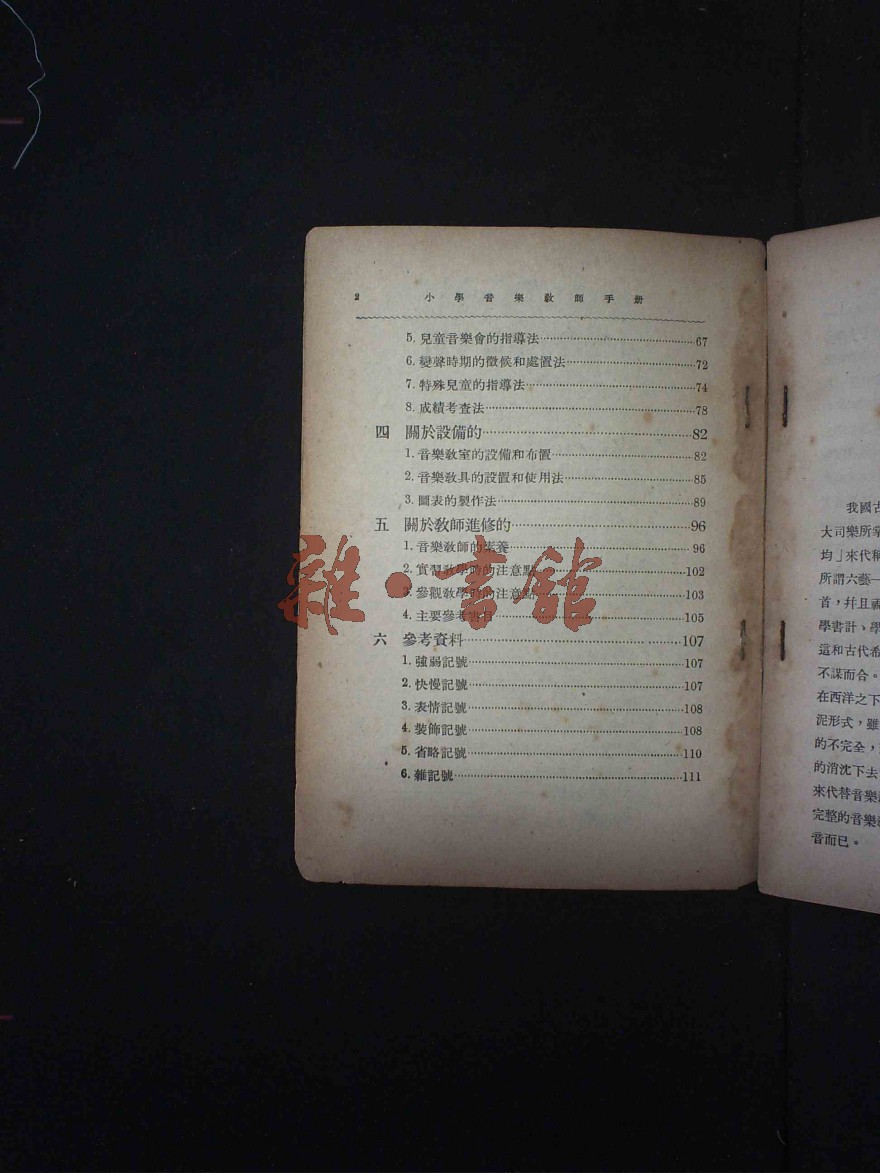 2 小學音樂教師手册
5. 兒童音樂會的指導法 67
6. 變聲時期的徵候和處置法 72
7. 特殊兒童的指導法 74
8. 成績考查法 78
四 關於設備的 82
1. 音樂教室的設備和布置 82
2. 音樂教具的設置和使用法 85
3. 圖表的製作法 89
五 關於教師進修的 96
1. 音樂教師的素養 96
2. 實習教學時的注意點 102
3. 參觀教學時的注意點 103
4. 主要參考書目 105
六 參考資料 107
1. 強弱記號 107
2. 快慢記號 107
3. 表情記號 108
4. 裝飾記號 108
5. 省略記號 110
6. 雜記號 111
雜·書館
我國古
大司樂所掌
均」來代稱
所謂六藝一
首，幷且
學書計、學
這和古代希
不謀而合。
在西洋之下
泥形式，雖
的不完全，
的消沈下去
來代替音樂
完整的音樂
音而已。